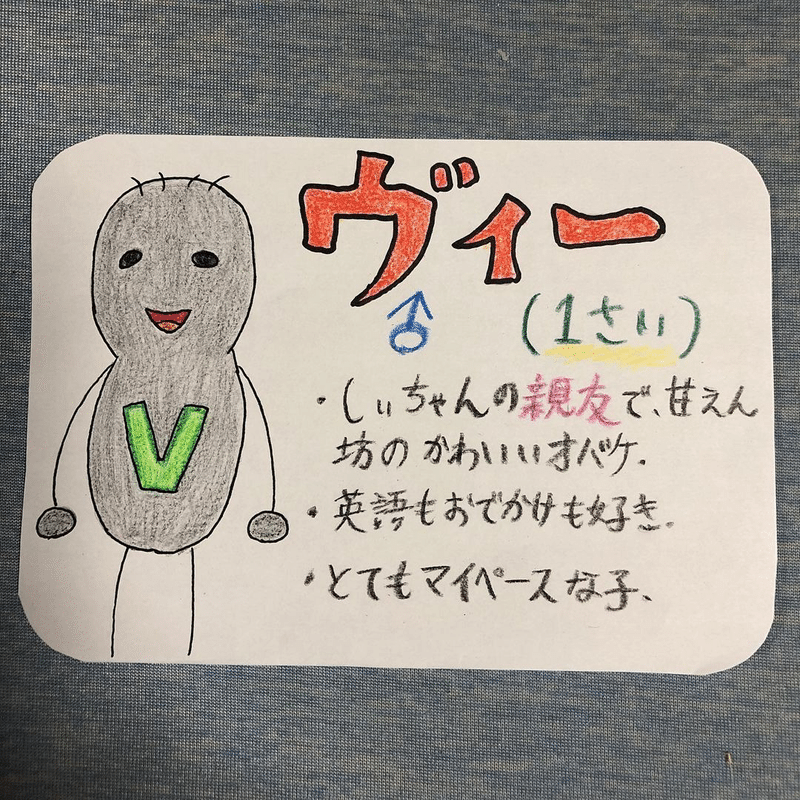 ヴィー
♂
(1さい)
・しぃちゃんの親友で、甘えん
坊のかわいいオバケ.
・英語もおでかけも好き.
・とてもマイペースな子、
V